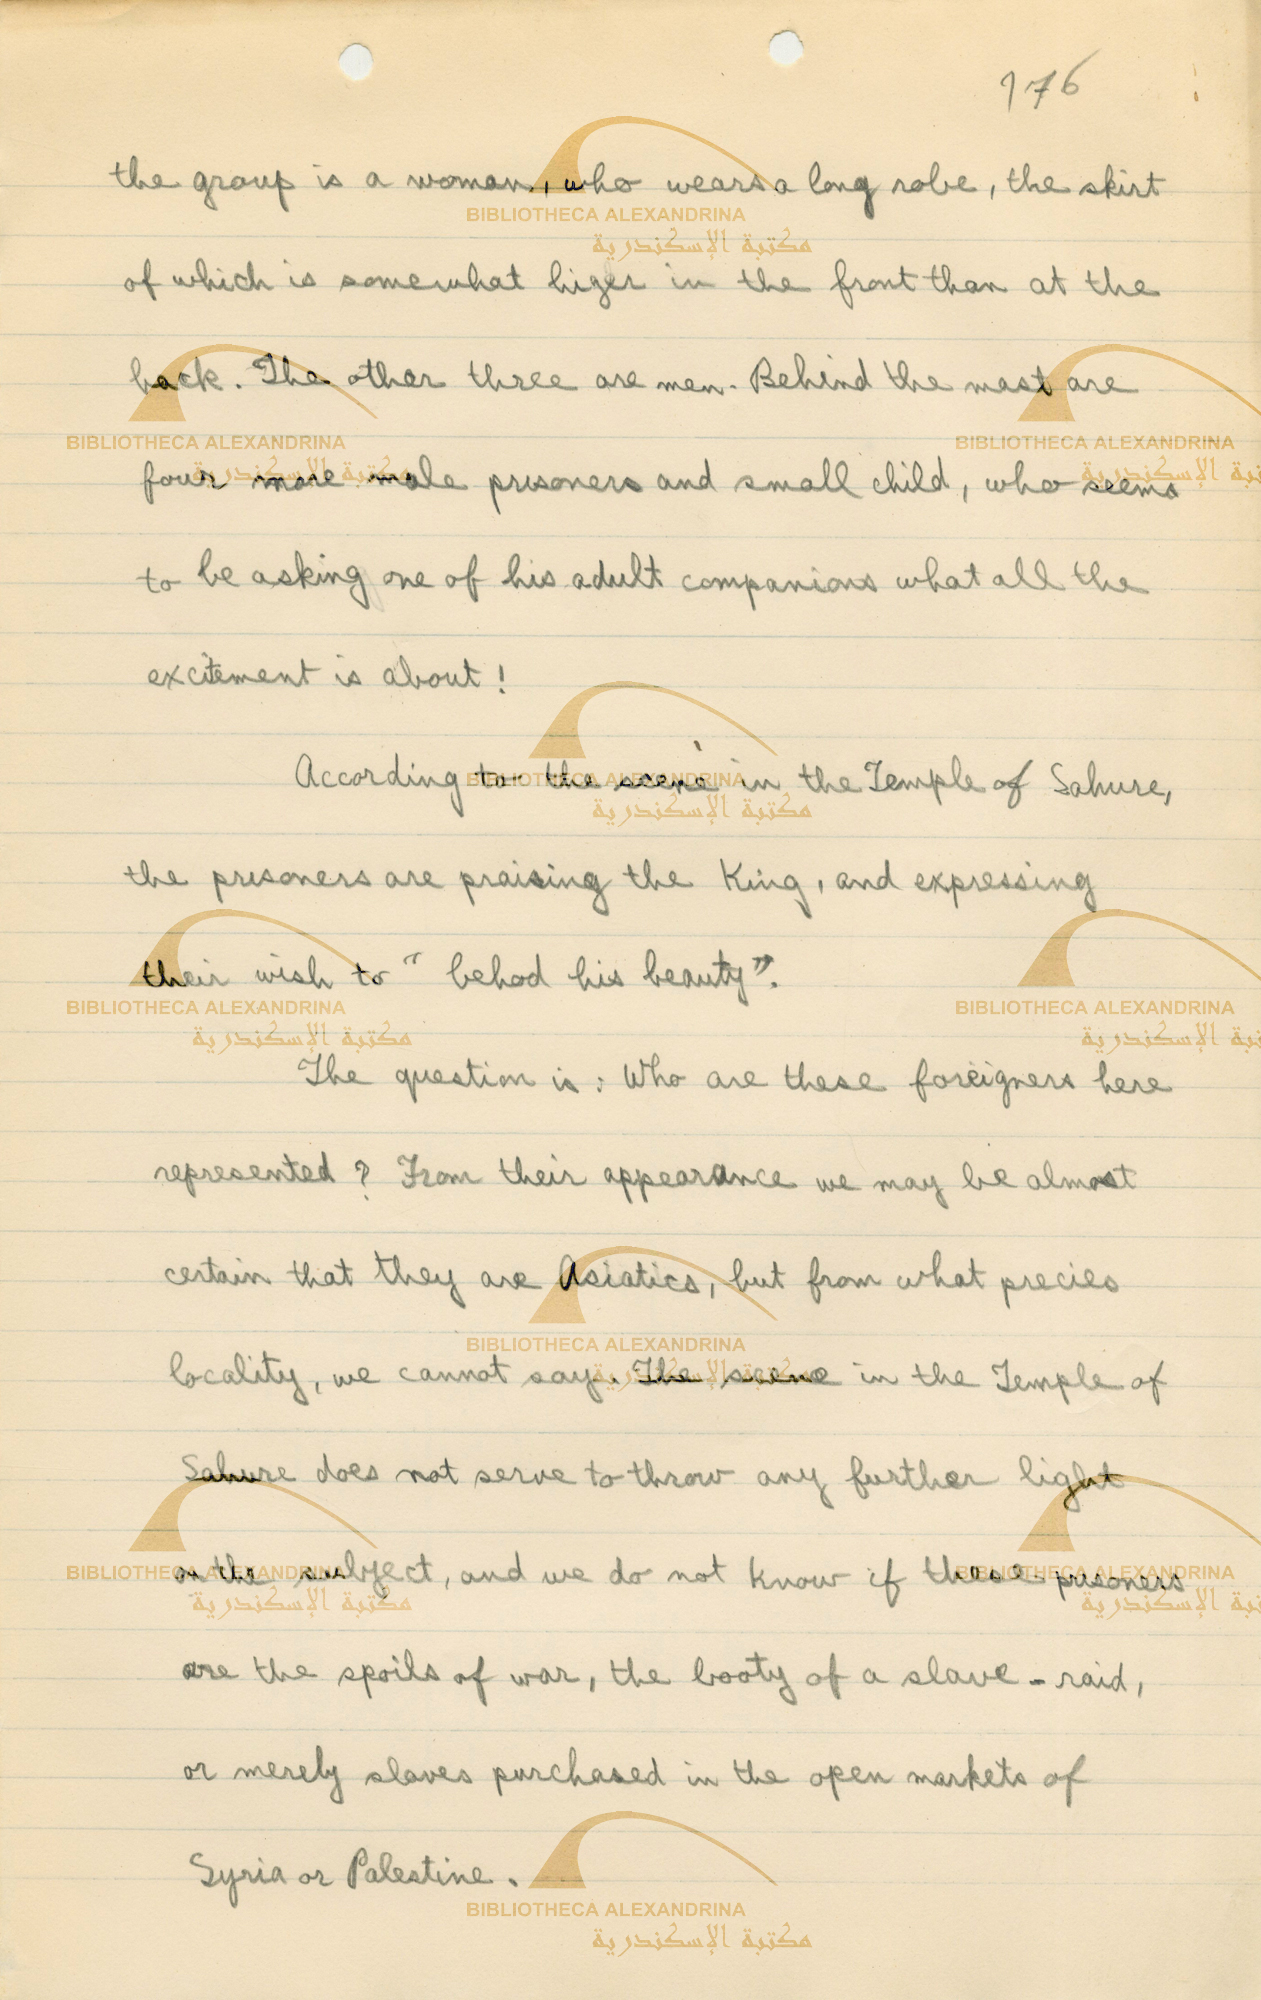 176
the group is a woman, who wears a long robe, the skirt
of which is somewhat higer in the front than at the
back. The other three are men. Behind the mast are
four more male prisoners and small child, who seems
to be asking one of his adult companions what all the
excitement is about!
According to the scene in the Temple of Sahure,
the prisoners are praising the King, and expressing
their wish to "behod his beauty".
The question is: Who are these foreigners here
represented? From their appearance we may be almost
certain that they are Asiatics, but from what precies
locality, we cannot say. The scene in the Temple of
Sahure does not serve to throw any further light
on the subject, and we do not know if these prisoners
are the spoils of war, the booty of a slave-raid,
or merely slaves purchased in the open markets of
Syria or Palestine.
BIBLIOTHECA ALEXANDRINA
مكتبة الإسكندرية